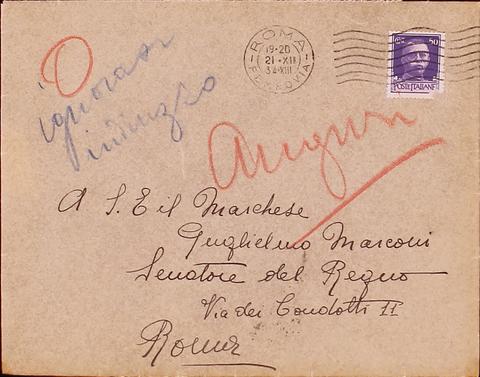 ROMA
FERROVIA
19-20
21-XII
34-XIII
50
POSTE ITALIANE
ignorasi
indirizzo
Auguri
A S. E il Marchese
Guglielmo Marconi
Senatore del Regno
Via dei Condotti 11
Roma